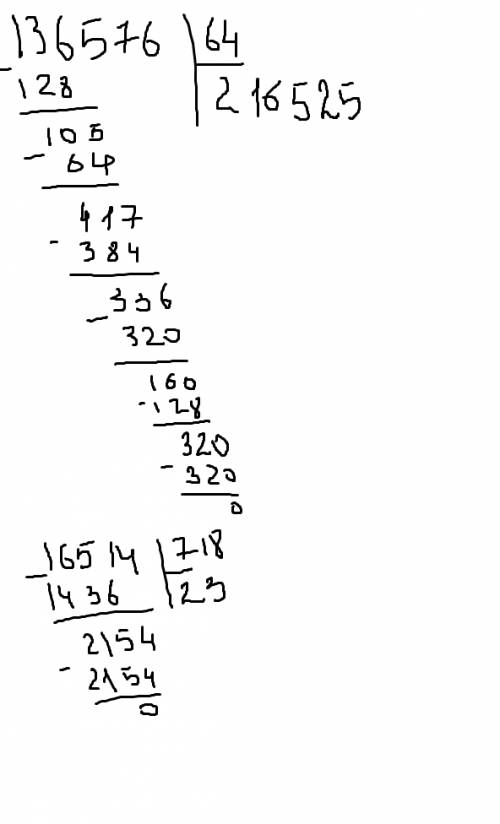 136576 64
- 128 216525
105
- 64
417
- 384
336
- 320
160
- 128
320
- 320
0
16514 718
- 1436 23
2154
- 2154
0